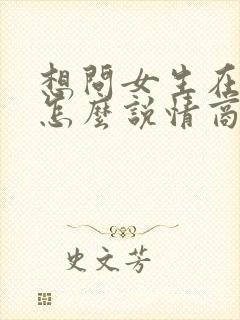 想問女生在
怎麼說情商
史文芳